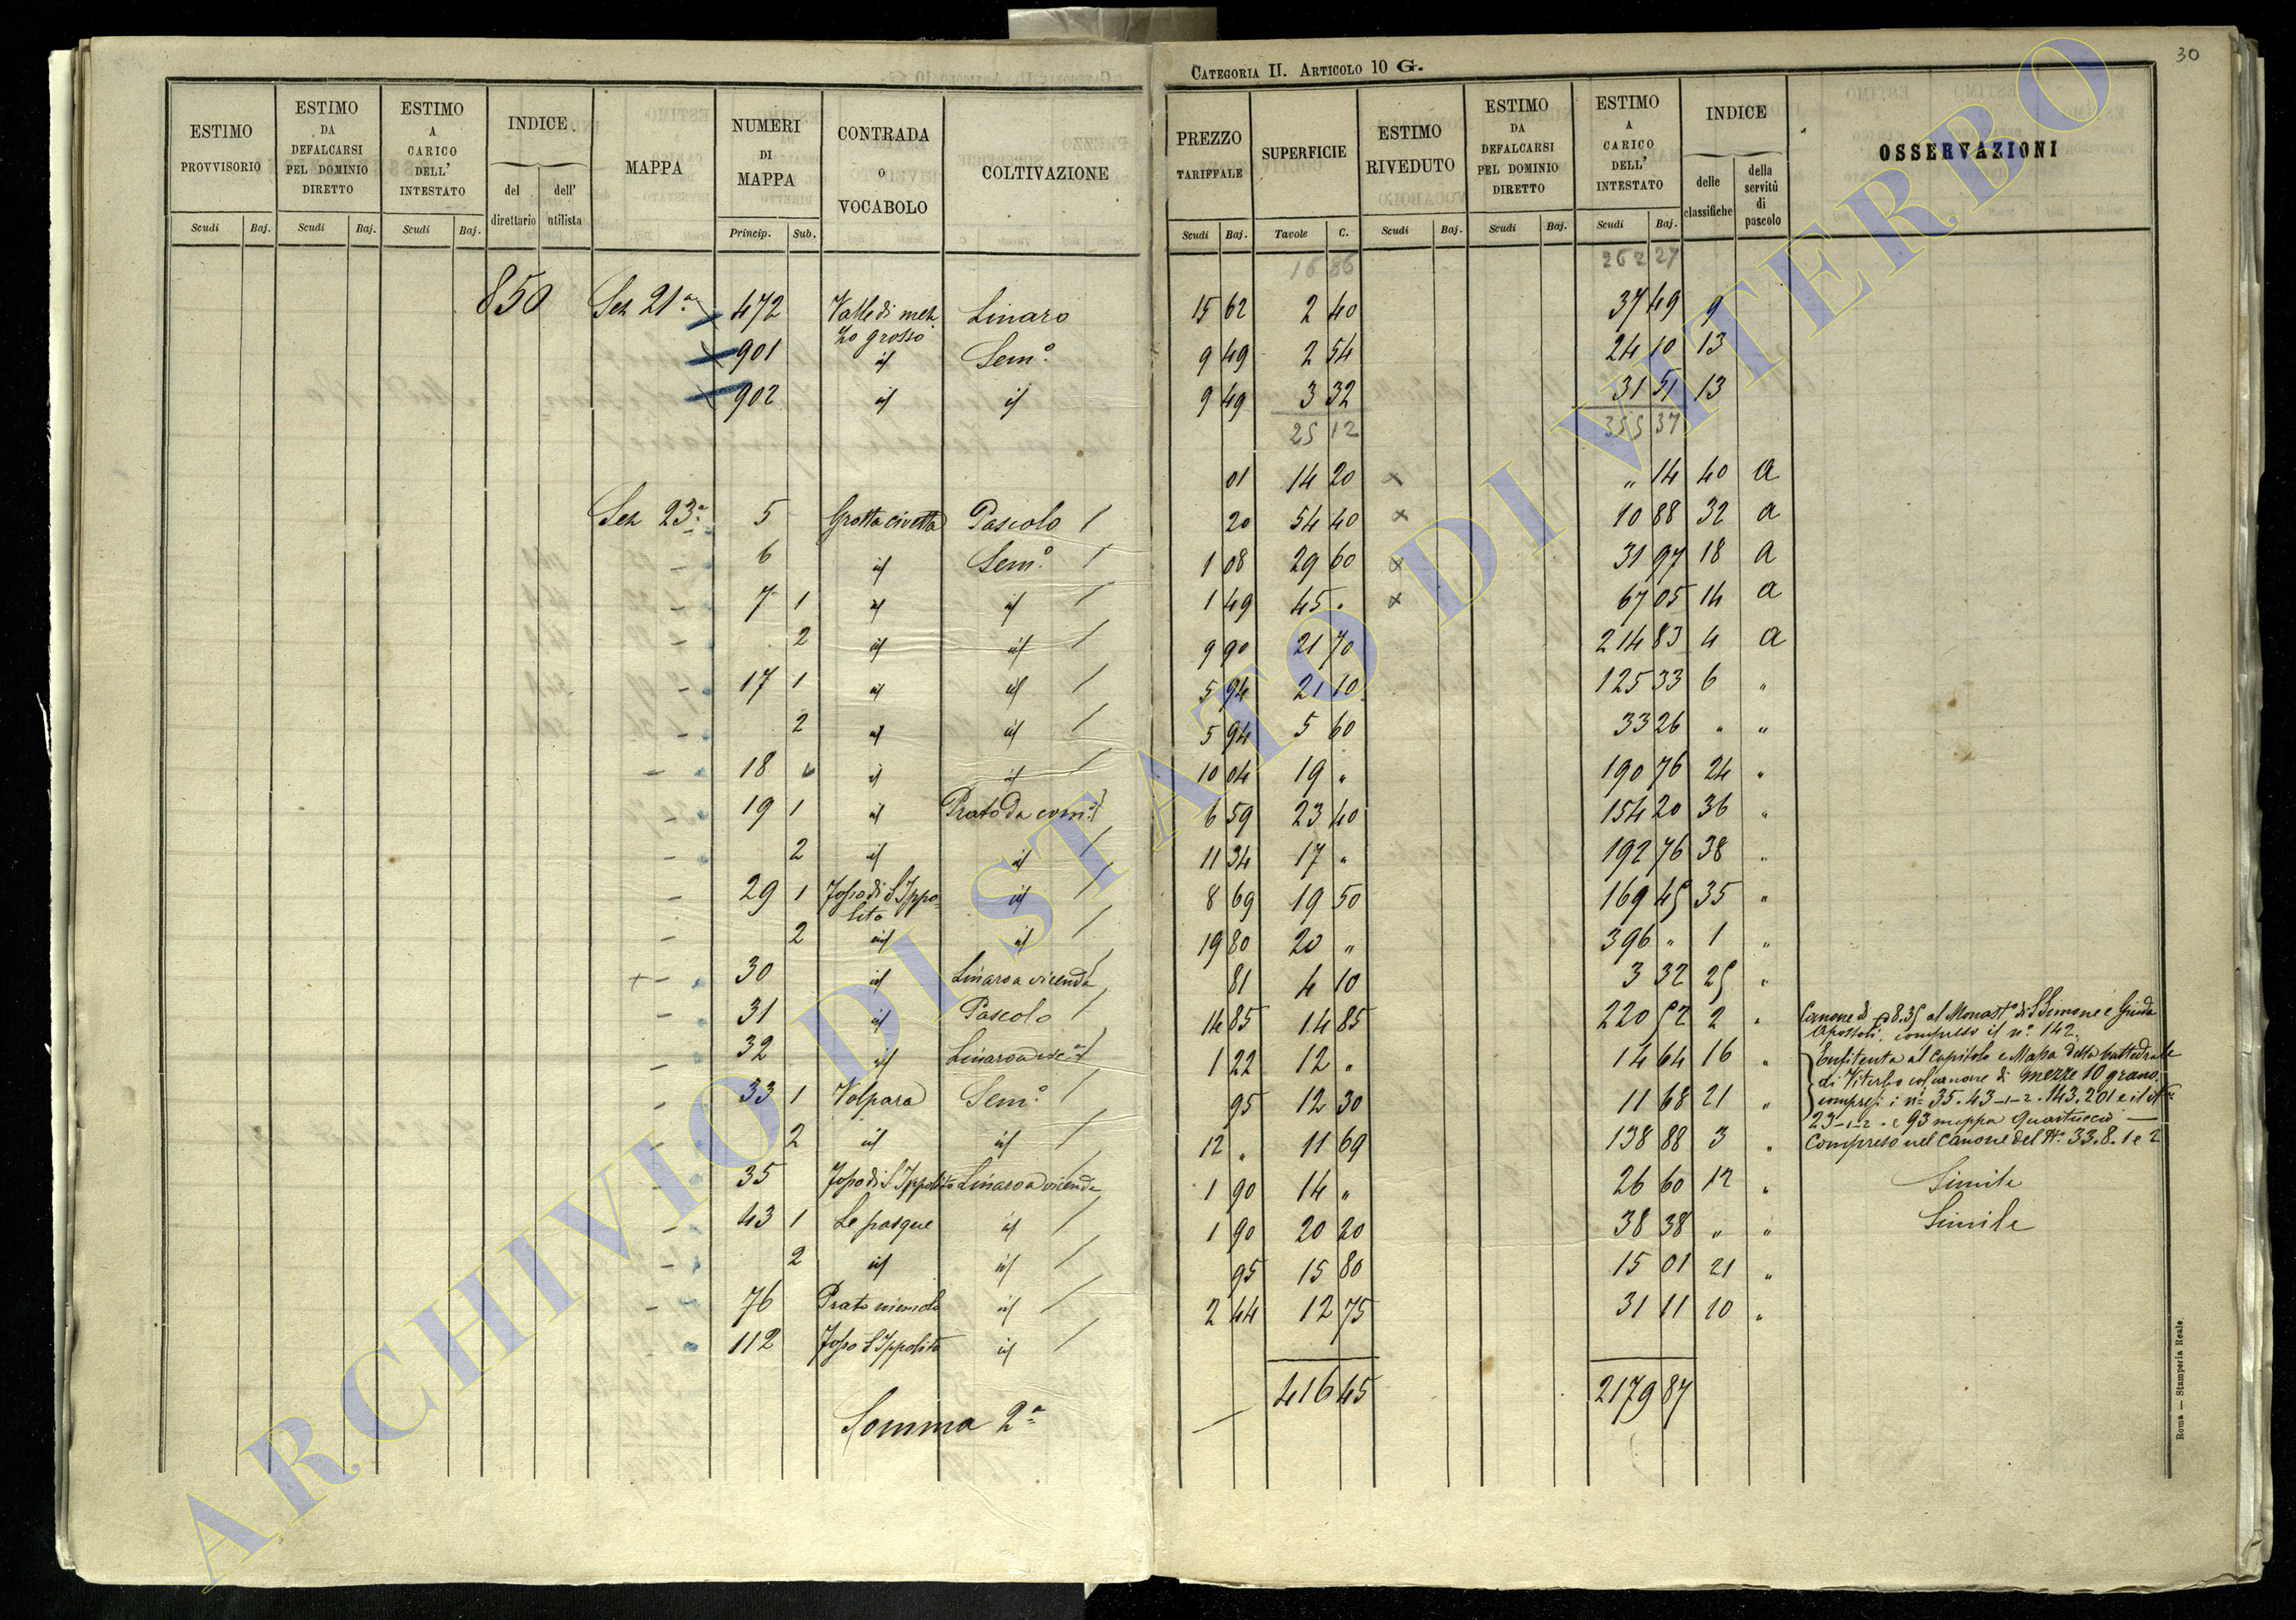 30
CATEGORIA II. ARTICOLO 10 G.
ESTIMO PROVVISORIO
ESTIMO DA DEFALCARSI PEL DOMINIO DIRETTO
ESTIMO A CARICO DELL' INTESTATO
INDICE
del direttario
dell' utilista
MAPPA
NUMERI DI MAPPA
CONTRADA O VOCABOLO
COLTIVAZIONE
Scudi Baj. Scudi Baj. Scudi Baj. Princip. Sub.
850 Sez 21a 472 Valle di mez Linaro
zo grosso
901 id Sem.o
902 id id
Sez 23a 5 Grotta civetta Pascolo
6 id Sem.o
7 1 id id
2 id id
17 1 id id
2 id id
18 id id
19 1 id Prato da com.
2 id id
29 1 Fosso di S Ippo= id
lito
2 id id
30 id Linaro a vicenda
31 id Pascolo
32 id Linaro a
33 1 Volpara Sem.o
2 id id
35 Fosso di S Ippolito Linaro a vicenda
43 1 Le pasque id
2 id id
76 Prato id
112 Fosso S Ippolito id
Somma 2a
PREZZO TARIFFALE
SUPERFICIE
ESTIMO RIVEDUTO
ESTIMO DA DEFALCARSI PEL DOMINIO DIRETTO
ESTIMO A CARICO DELL' INTESTATO
INDICE
delle classifiche
della servitù di pascolo
OSSERVAZIONI
Scudi Baj. Tavole C. Scudi Baj. Scudi Baj. Scudi Baj.
16 86 262 27
15 62 2 40 37 49 9
9 49 2 54 24 10 13
9 49 3 32 31 51 13
25 12 355 37
01 14 20 x " 14 40 a
20 54 40 x 10 88 32 a
1 08 29 60 x 31 97 18 a
1 49 45 . x 67 05 14 a
9 90 21 70 214 83 4 a
5 94 21 10 125 33 6 "
5 94 5 60 33 26 " "
10 04 19 " 190 76 24 "
6 59 23 40 154 20 36 "
11 34 17 " 192 76 38 "
8 69 19 50 169 45 35 "
19 80 20 " 396 " 1 "
81 4 10 3 32 25 "
14 85 14 85 220 52 2 " Canone di 8.35 al Monast.o di S Simone e Giuda
Apostoli. compreso il n.o 142.
1 22 12 " 14 64 16 " Enfiteuta al Capitolo e Massa della Cattedrale
di Viterbo col canone di mezze 10 grano.
95 12 30 11 68 21 " compresi i n.i 35. 43-1-2. 143. 201 e il
23-1-2. e 93 mappa Quartuccio
12 " 11 69 138 88 3 " Compreso nel Canone del N.o 33. S. 1 e 2
1 90 14 " 26 60 12 " Simile
1 90 20 20 38 38 " " Simile
95 15 80 15 01 21 "
2 44 12 75 31 11 10 "
416 45 2179 87
Roma — Stamperia Reale.
ARCHIVIO DI STATO DI VITERBO